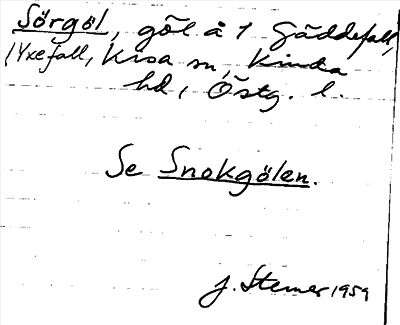 Sörgöl, göl å 1 Gäddefall,
(Yxefall, Kisa sn, Kinda
hd, Östg. l.
Se Snokgölen.
J. Sterner 1959